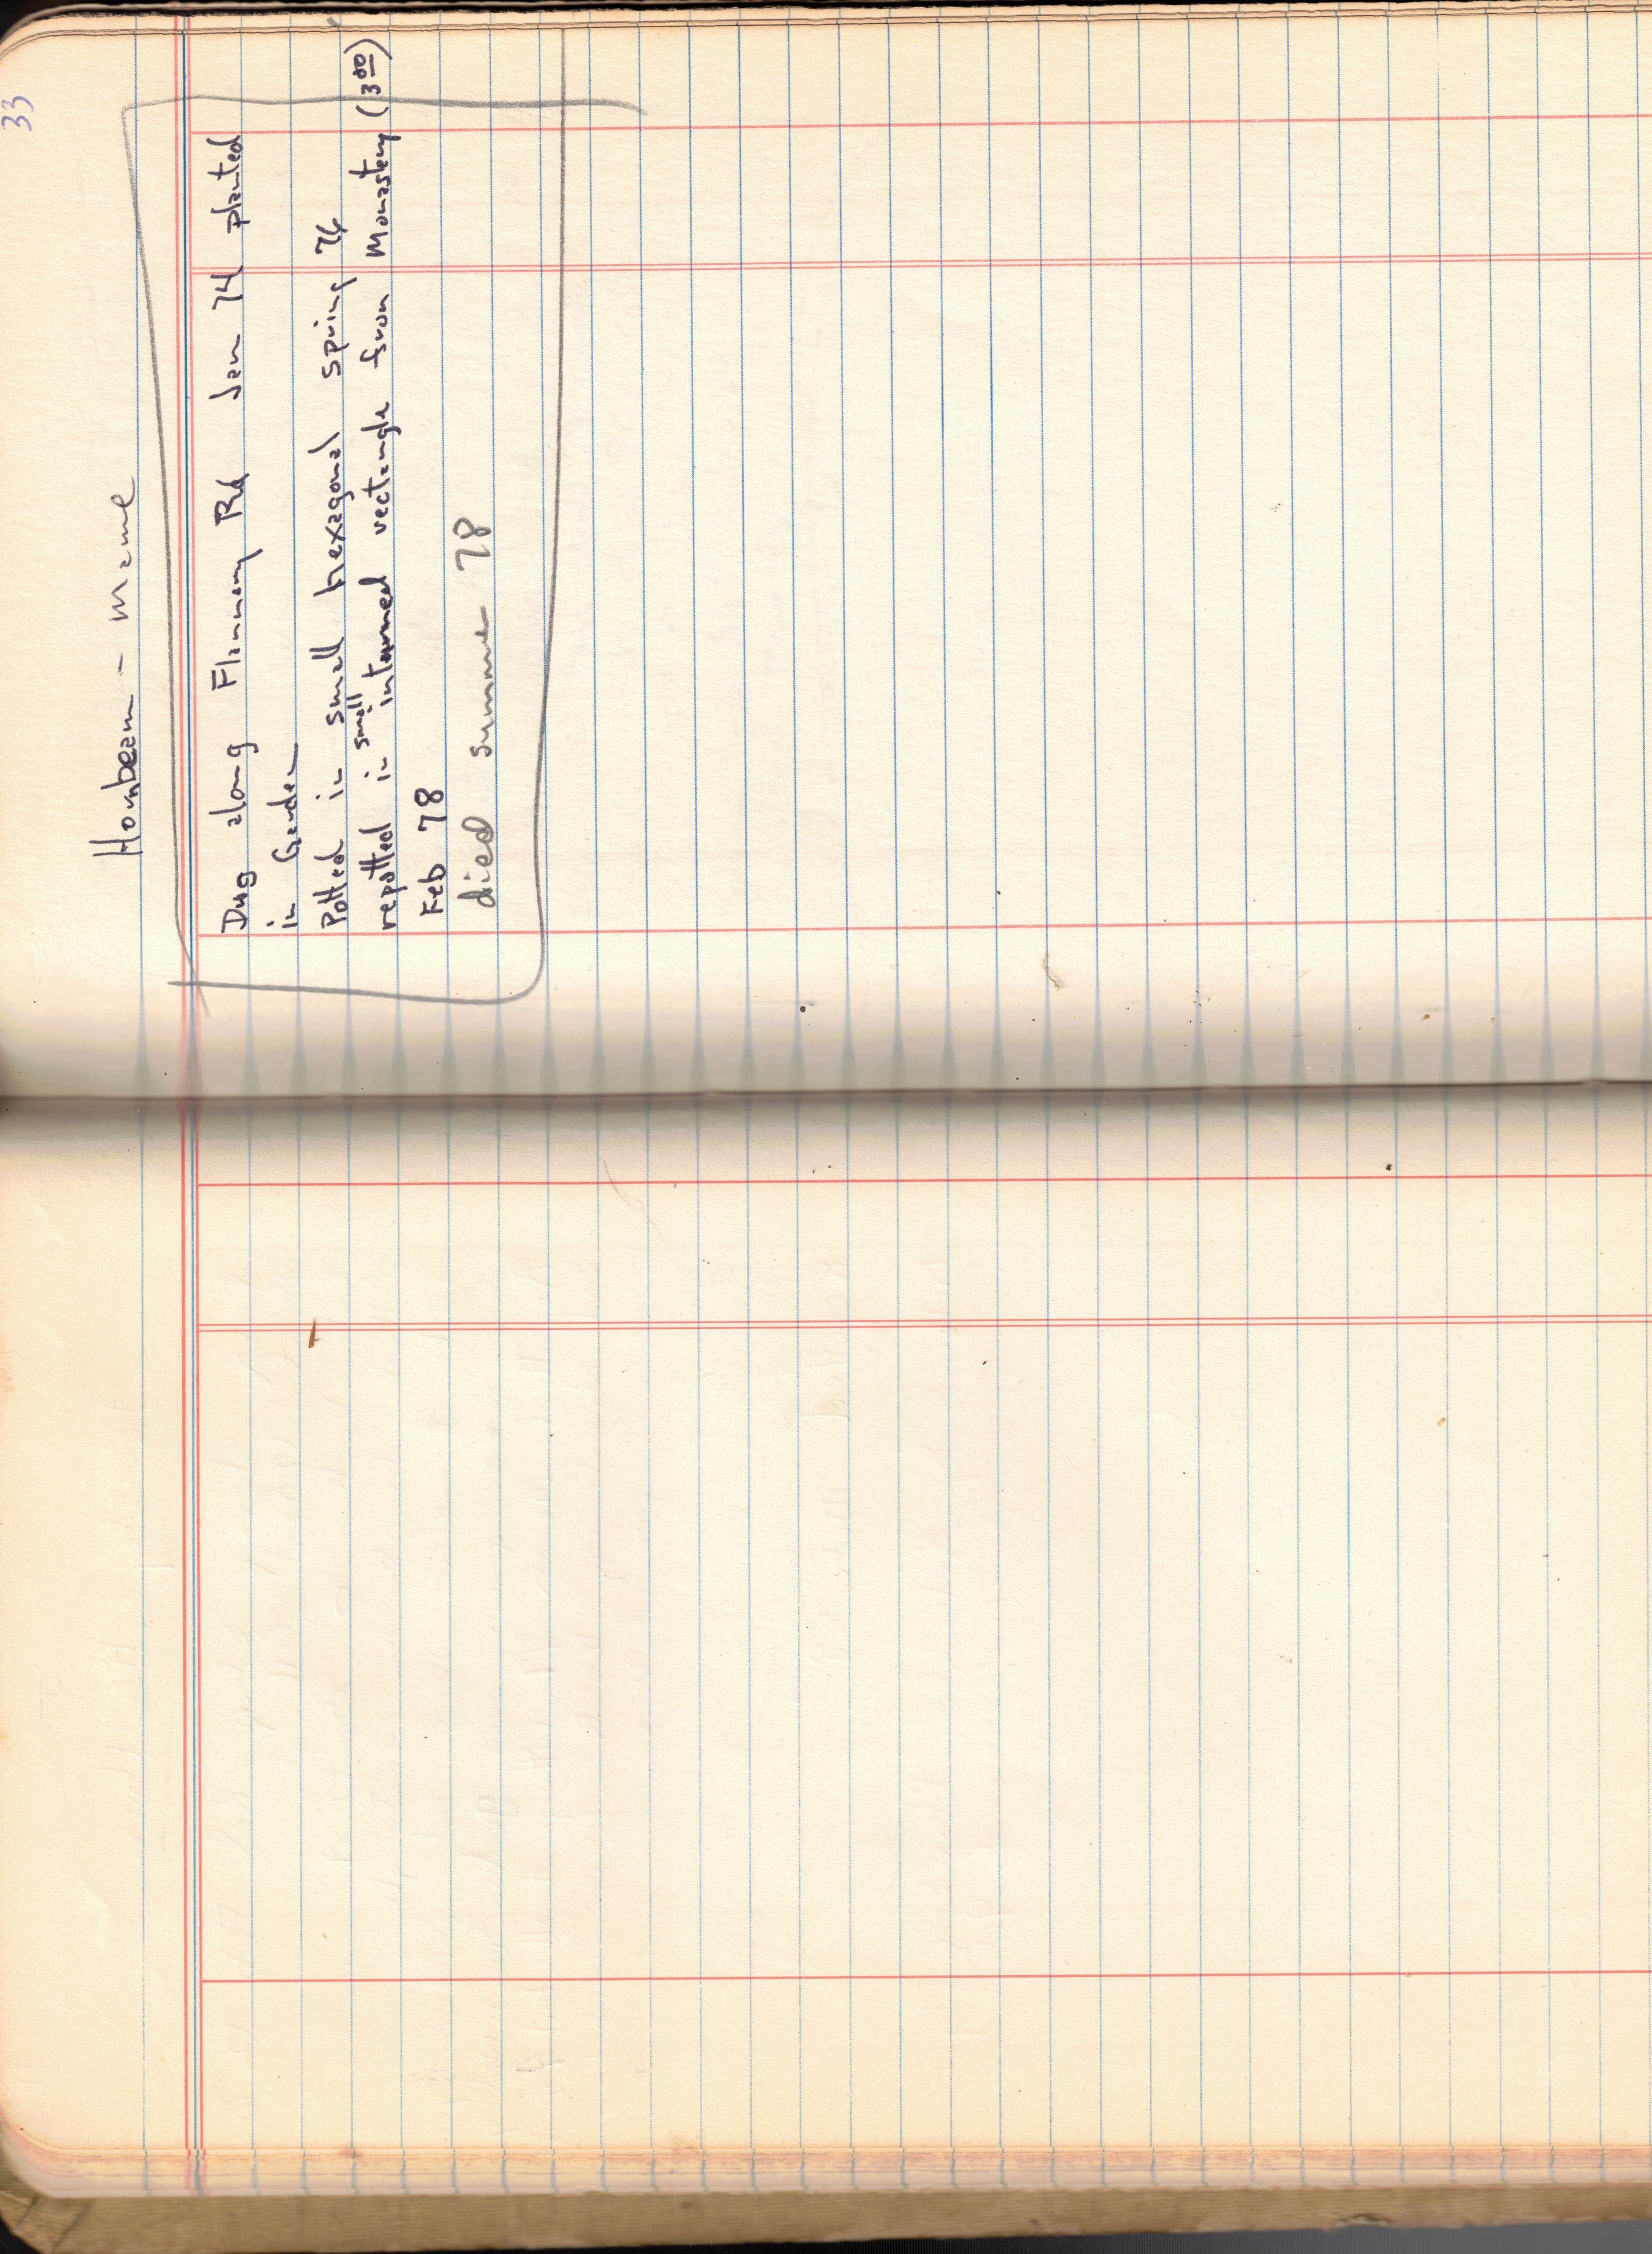 33
Hornbeam - Mame
Dug along Flannery Rd Jan 74 planted
in Garden
Potted in small hexagonal spring 76
repotted in small inturned rectangle from Monastery (3.00)
Feb 78
died summer 78